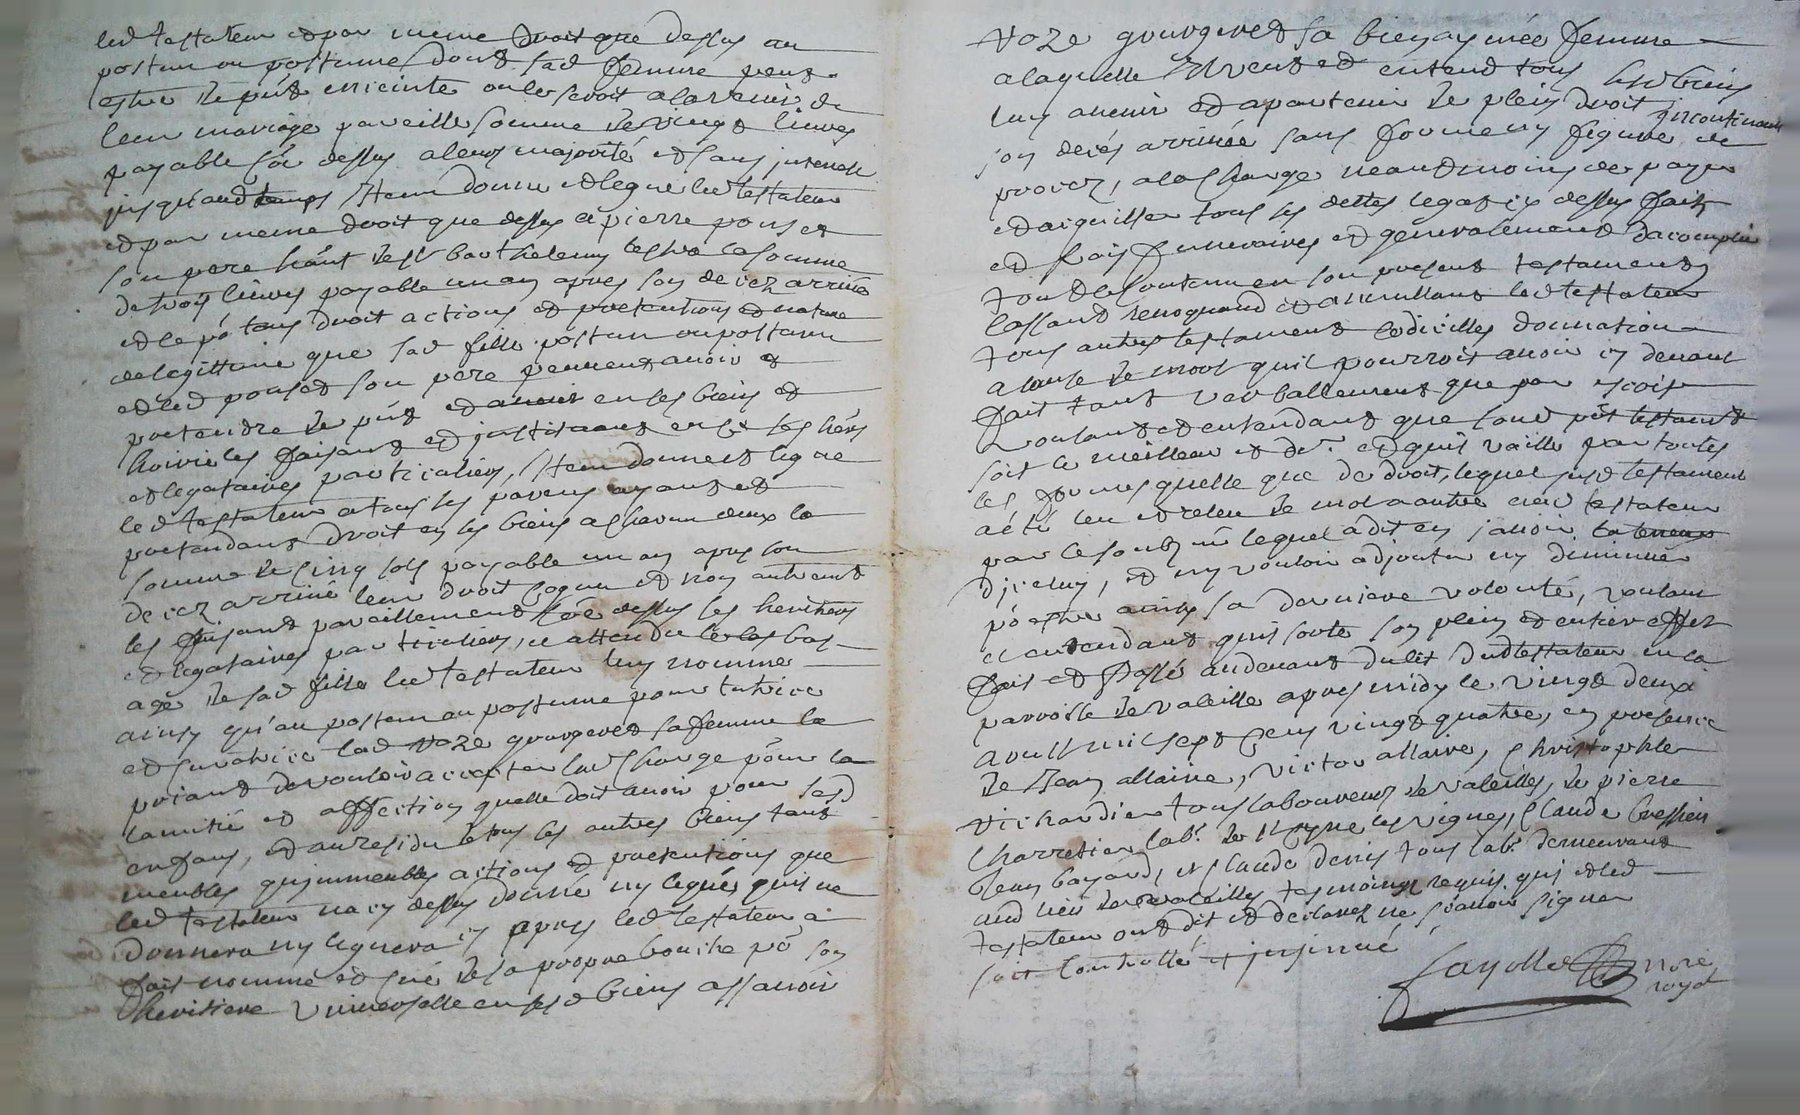 led testateur et par meme droit que dessus au
postum ou postume dont sad femme peut
estre de pnt enceinte ou le seroit a la venir de
leur mariage pareille somme de vingt livres
payable co͞e dessus a leur majorité et sans interest
jusqu'aud temps Item donne et legue led testateur
et par meme droit que dessus a pierre ponset
son pere hant de st barthelemy lestra la somme
de trois livres payable un an apres son decez arrivé
et le po tous droit actions et pretentions et nature
de legittime que sad fille postum ou postume
et led ponset son pere peuvent avoir et
pretendre de pnt et a venir en ses biens et
hoiries les faisant et instituant en ce ses hers
et legataires particuliers, Item donne et legue
led testateur a tous ses parens ayant et
pretendant droit en ses biens a chacun deux la
somme de cinq sols payable un an apres son
decez arrivé leur droit cognu et non autremt
les faisant pareillement co͞e dessus ses heritiers
et legataires particuliers, et attendu le bas
age de sad fille led testateur luy nomme
ainsy qu'au postum ou postume pour tutrice
et curatrice lad noze gourgeret sa femme la
priant de vouloir accepter lad charge pour la
lamitié et affection quelle doit avoir pour sesd
enfans, et au residu de tous ses autres biens tant
meubles qu'immeubles actions et pretentions que
led testateur na cy dessus donné ny legué quil ne
donnera ny leguera cy apres led testateur a
fait nommé et creé de sa propre bouche po son
heritiere universelle en sesd biens assavoir
noze gourgeret sa bien aymée femme
a laquelle il veut et entend tous sesd biens
luy avenir et apartenir de plein droit incontinant
son decés arrivée sans forme ny figure de
procez, a la charge neantmoins de payer
et daquitter tous ses dettes legats cy dessus fait
et frais funeraires et generalement d'acomplir
tout le contenu en son present testament
cassant revoquand et annullant led testateur
tous autres testament codicilles donnation
a cause de mort quil pourroit avoir cy devant
fait tant verballement que par escrit
voulant et entendant que sond pnt testamt
soit le meilleur et der. et quil vaille par toutes
les formes quelle que de droit, lequel susd testament
a été leu et releu de mot a autre aud testateur
par le soubz né lequel a dit en scavoir la teneur
d'icelluy, et ny vouloir adjouter ny diminuer
po estre ainsy sa derniere volonté, voulant
et entendant quil sorte son plein et entier effet
fait et passé au devant du lit dud testateur en la
parroisse de valeille apres midy le vingt deux
aoust mil sept cens vingt quatre, en presence
de Jean allaire, victor allaire, christophle
richardier tous laboureurs de valeilles, de pierre
charretier labr. de st cyr les vignes, claude bressieu
Jean bayard, et claude denis tous labr. demeurant
aud lieu de valeilles tesmoings requis qui et led
testateur ont dit et declarez ne scavoir signer
soit controllé et insinué
fayolle nore
royal